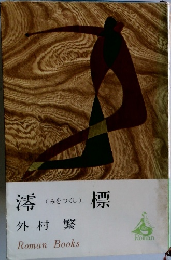 澪(みをつくし)標
外村 繁
Roman Books